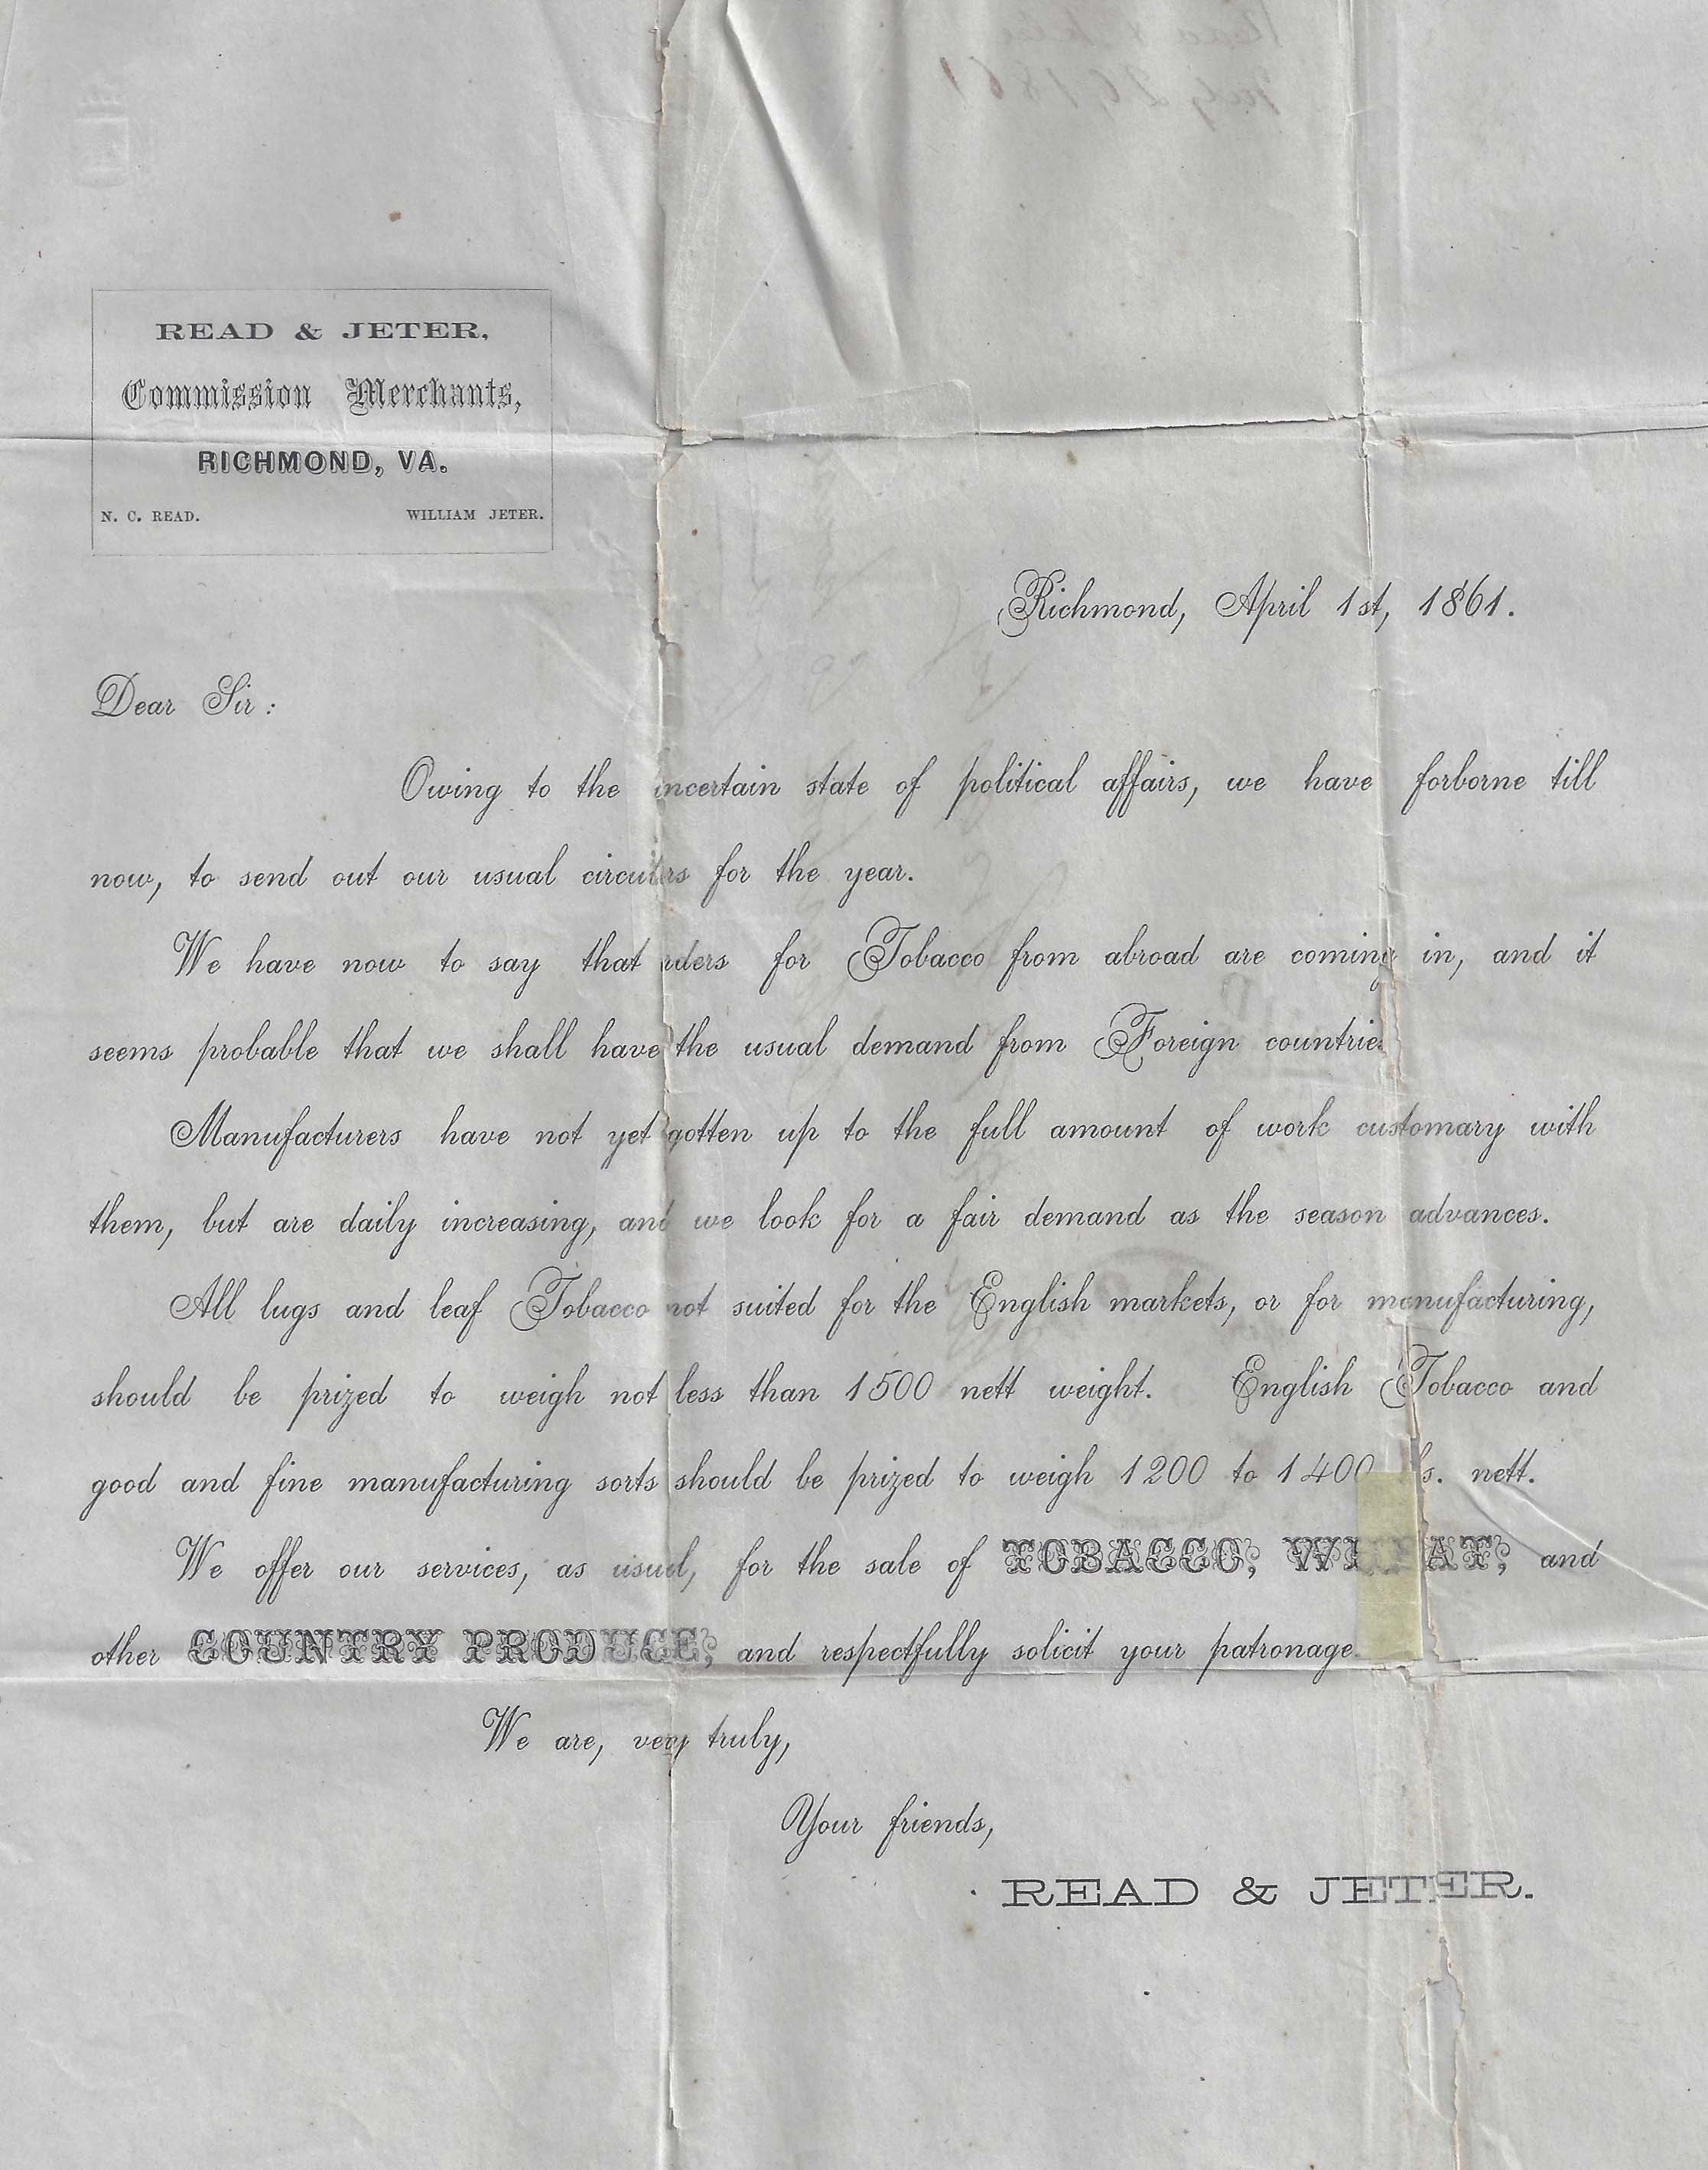 READ & JETER,
Commission Merchants,
RICHMOND, VA.
N. C. READ. WILLIAM JETER.
Richmond, April 1st, 1861.
Dear Sir:
Owing to the uncertain state of political affairs, we have forborne till
now, to send out our usual circulars for the year.
We have now to say that orders for Tobacco from abroad are coming in, and it
seems probable that we shall have the usual demand from Foreign countries
Manufacturers have not yet gotten up to the full amount of work customary with
them, but are daily increasing, and we look for a fair demand as the season advances.
All lugs and leaf Tobacco not suited for the English markets, or for manufacturing,
should be prized to weigh not less than 1500 nett weight. English Tobacco and
good and fine manufacturing sorts should be prized to weigh 1200 to 1400 lbs. nett.
We offer our services, as usual, for the sale of TOBACCO, WHEAT, and
other COUNTRY PRODUCE, and respectfully solicit your patronage.
We are, very truly,
Your friends,
READ & JETER.